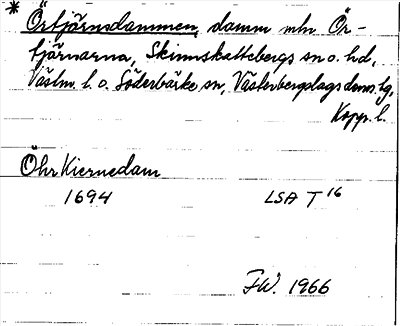 * Örtjärnsdammen, damm mln Ör-
tjärnarna, Skinnskattebergs sn o. hd,
Västm. l. o. Söderbärke sn, Västerbergslags doms.g,
Kopp. l.
Öhr Kiernedam
1694 LSA T 16
F.W. 1966